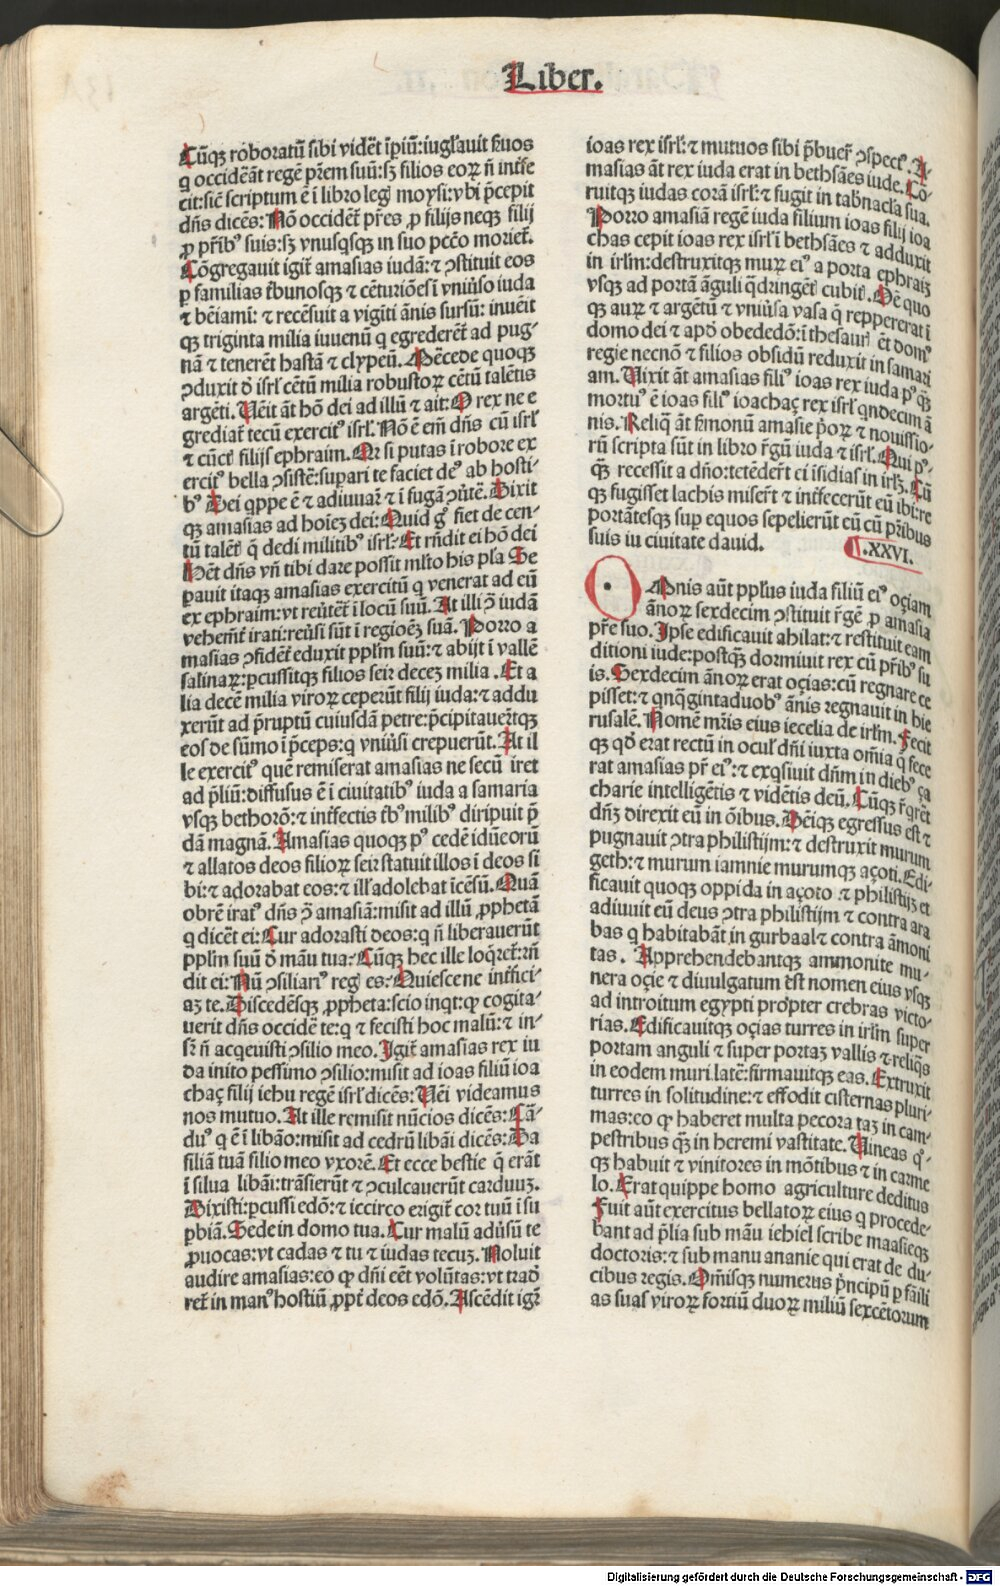 Liber.
Cūqꝫ roboratū sibi vidēt īpiū: iugl̄auit ẜuos
q occidēāt regē pr̄em suū: sꝫ filios eoꝝ n̄ intẜfe
cit: sic̄ scriptum ē ī libro legꝭ moysi: vbi p̄cepit
dn̄s dicēs: Nō occidēt pr̄es ꝓ filijs neqꝫ filij
ꝓ pr̄ibꝰ suis: sꝫ vnusqsqꝫ in suo pctō morieť.
Cōgregauit igiť amasias iudā: ⁊ ꝯstituit eos
ꝑ familias tͥbunosqꝫ ⁊ cēturiōes ī vniūso iuda
⁊ bēiamī: ⁊ recēsuit a vigīti ānis sursū: inuēit
qꝫ triginta milia iuuenū q egrederēt ad pug-
nā ⁊ tenerēt hastā ⁊ clypeū. Mēcede quoqꝫ
ꝯduxit d̄ isrl̄ cētū milia robustoꝝ cētū talētis
argēti. Uēit āt hō dei ad illū ⁊ ait: O rex ne e
grediať tecū exercitꝰ isrl̄. Nō ē em̄ dn̄s cū isrl̄
⁊ cūctꝭ filijs ephraim. Qr̄ si putas ī robore ex
ercitꝰ bella ꝯsistē: supari te faciet deꝰ ab hosti-
bꝰ Dei qppe ē ⁊ adiuuaꝝ ⁊ ī fugā ꝯūtē. Dixit
qꝫ amasias ad hoieꝫ dei: Quid gͦ fiet de cen-
tū talētꝭ q̄ dedi militibꝰ isrl̄. Et rn̄dit ei hō dei
Hēt dn̄s vn̄ tibi dare possit ml̄to his pl̄a Se
parauit itaqꝫ amasias exercitū q venerat ad eū
ex ephraim: vt reūteť ī locū suū. At illi ꝯ̄ iudā
vehemēť irati: reūsi sūt ī regiōeꝫ suā. Porro a
masias ꝯfidēť eduxit pplm̄ suū: ⁊ abijt ī vallē
salinaꝝ: ꝑcussitqꝫ filios seir deceꝫ milia. Et a
lia decē milia viroꝝ ceperūt filij iuda: ⁊ addu
xerūt ad p̄ruptū cuiusdā petre: p̄cipitaueřtqꝫ
eos de sūmo ī p̄ceps: q vniūsi crepuerūt. At il
le exercitꝰ quē remiserat amasias ne secū iret
ad p̄liū: diffusus ē ī ciuitatibꝰ iuda a samaria
vsqꝫ bethorō: ⁊ intẜfectis tͥbꝰ milibꝰ diripuit p̄
dā magnā. Amasias quoqꝫ pꝰ cedē idūeorū
⁊ allatos deos filioꝝ seir statuit illos ī deos si
bi: ⁊ adorabat eos: ⁊ ill̄ adolebat īcēsū. Quā
obrē iratꝰ dn̄s ꝯ̄ amasiā: misit ad illū ꝓphetā
q dicēt ei: Cur adorasti deos: q n̄ liberauerūt
pplm̄ suū d̄ māu tua: Cūqꝫ hec ille loq̄reť: rn̄
dit ei: Nū ꝯsiliariꝰ regꝭ es: Quiesce ne intẜfici-
aꝫ te. Discedēsqꝫ ꝓpheta: scio inqt: ꝙ cogita-
uerit dn̄s occidē te: q ⁊ fecisti hoc malū: ⁊ in-
sꝝ n̄ acqeuisti ꝯsilio meo. Igiť amasias rex iu
da inito pessimo ꝯsilio: misit ad ioas filiū ioa
chaꝫ filij iehu regē isrl̄ dicēs: Uēi videamus
nos mutuo. At ille remisit nūcios dicēs: Cā-
duꝰ q ē ī libāo: misit ad cedrū libāi dicēs: Da
filiā tuā filio meo vxorē. Et ecce bestie q erāt
ī silua libāi: trāsierūt ⁊ ꝯculcauerūt carduuꝫ.
Dixisti: ꝑcussi edō: ⁊ iccirco erigiť cor tuū ī su
ꝑbiā. Sede in domo tua. Cur malū adūsū te
ꝓuocas: vt cadas ⁊ tu ⁊ iudas tecuꝫ. Noluit
audire amasias: eo ꝙ dn̄i eēt volūtas: vt trad̄
reť in manꝰ hostiū ꝓpť deos edō. Ascēdit igꝝ
ioas rex isrl̄: ⁊ mutuos sibi p̄buer̄ ꝯspectꝰ. A-
masias āt rex iuda erat in bethsāes iude. Cor
ruitqꝫ iudas corā isrl̄: ⁊ fugit in tab̄nacl̄a sua.
Porro amasiā regē iuda filium ioas filij ioa
chas cepit ioas rex isrl̄ ī bethsāes ⁊ adduxit
in irl̄m: destruxitqꝫ muꝝ eiꝰ a porta ephraiꝫ
vsqꝫ ad portā āguli q̄dringētꝭ cubitꝭ. Oē quo
qꝫ auꝝ ⁊ argētū ⁊ vniūsa vasa q̄ reppererat ī
domo dei ⁊ apd̄ obededō: ī thesaurꝭ ēt domꝰ
regie necnō ⁊ filios obsidū reduxit in samari
am. Uixit āt amasias filiꝰ ioas rex iuda pꝰ qꝫ
mortuꝰ ē ioas filiꝰ ioachaꝫ rex isrl̄ qndecim ā
nis. Reliq̄ āt ẜmonū amasie p̄oꝝ ⁊ nouissio-
rū scripta sūt in libro r̄gū iuda ⁊ isrl̄. Qui pꝰ-
q̄ꝫ recessit a dn̄o: tetēder̄t ei īsidias in irlꝫ. Cū
qꝫ fugisset lachis miser̄t ⁊ intẜfecerūt eū ibi: re
portātesqꝫ sup equos sepelierūt eū cū pr̄ibus
suis iu ciuitate dauid.
.XXVI.
Omnis aūt pplūs iuda filiū eiꝰ oçiam
ānoꝝ sexdecim ꝯstituit r̄gē ꝓ amasia
pr̄e suo. Ipse edificauit ahilat: ⁊ restituit eam
ditioni iude: postq̄ꝫ dormiuit rex cū pr̄ibꝰ su
is. Sexdecim ānoꝝ erat oçias: cū regnare ce
pisset: ⁊ qnqgintaduobꝰ ānis regnauit in hie
rusalē. Nomē mr̄is eius iecelia de irl̄m. Fecit
qꝫ qd̄ erat rectū in oculꝭ dn̄i iuxta om̄ia q̄ fece
rat amasias pr̄ eiꝰ: ⁊ exqsiuit dn̄m in diebꝰ ça
charie intelligētis ⁊ vidētis deū. Cūqꝫ r̄qrēt
dn̄ꝫ direxit eū in oībus. Dēiqꝫ egressus est ⁊
pugnauit ꝯtra philistijm: ⁊ destruxit murum
geth: ⁊ murum iamnie murumqꝫ açoti. Edi-
ficauit quoqꝫ oppida in açoto ⁊ philistijꝫ et
adiuuit eū deus ꝯtra philistijm ⁊ contra ara
bas q habitabāt in gurbaal ⁊ contra āmoni
tas. Apprehendebantqꝫ ammonite mu-
nera oçie ⁊ diuulgatum est nomen eius vsqꝫ
ad introitum egypti propter crebras victo-
rias. Edificauitqꝫ oçias turres in irl̄m super
portam anguli ⁊ super portaꝫ vallis ⁊ reliq̄s
in eodem muri latē: firmauitqꝫ eas. Extruxit
turres in solitudine: ⁊ effodit cisternas pluri-
mas: eo ꝙ haberet multa pecora taꝫ in cam-
pestribus q̄ꝫ in heremi vastitate. Uineas qͦ-
qꝫ habuit ⁊ vinitores in mōtibus ⁊ in carme
lo. Erat quippe homo agriculture deditus
Fuit aūt exercitus bellatoꝝ eius q procede-
bant ad p̄lia sub māu iehiel scribe maasieqꝫ
doctoris: ⁊ sub manu ananie qui erat de du-
cibus regis. Om̄isqꝫ numerus p̄ncipū ꝑ fāili
as suas viroꝝ fortiū duoꝝ miliū sexcētorum
Digitalisierung gefördert durch die Deutsche Forschungsgemeinschaft - DFG